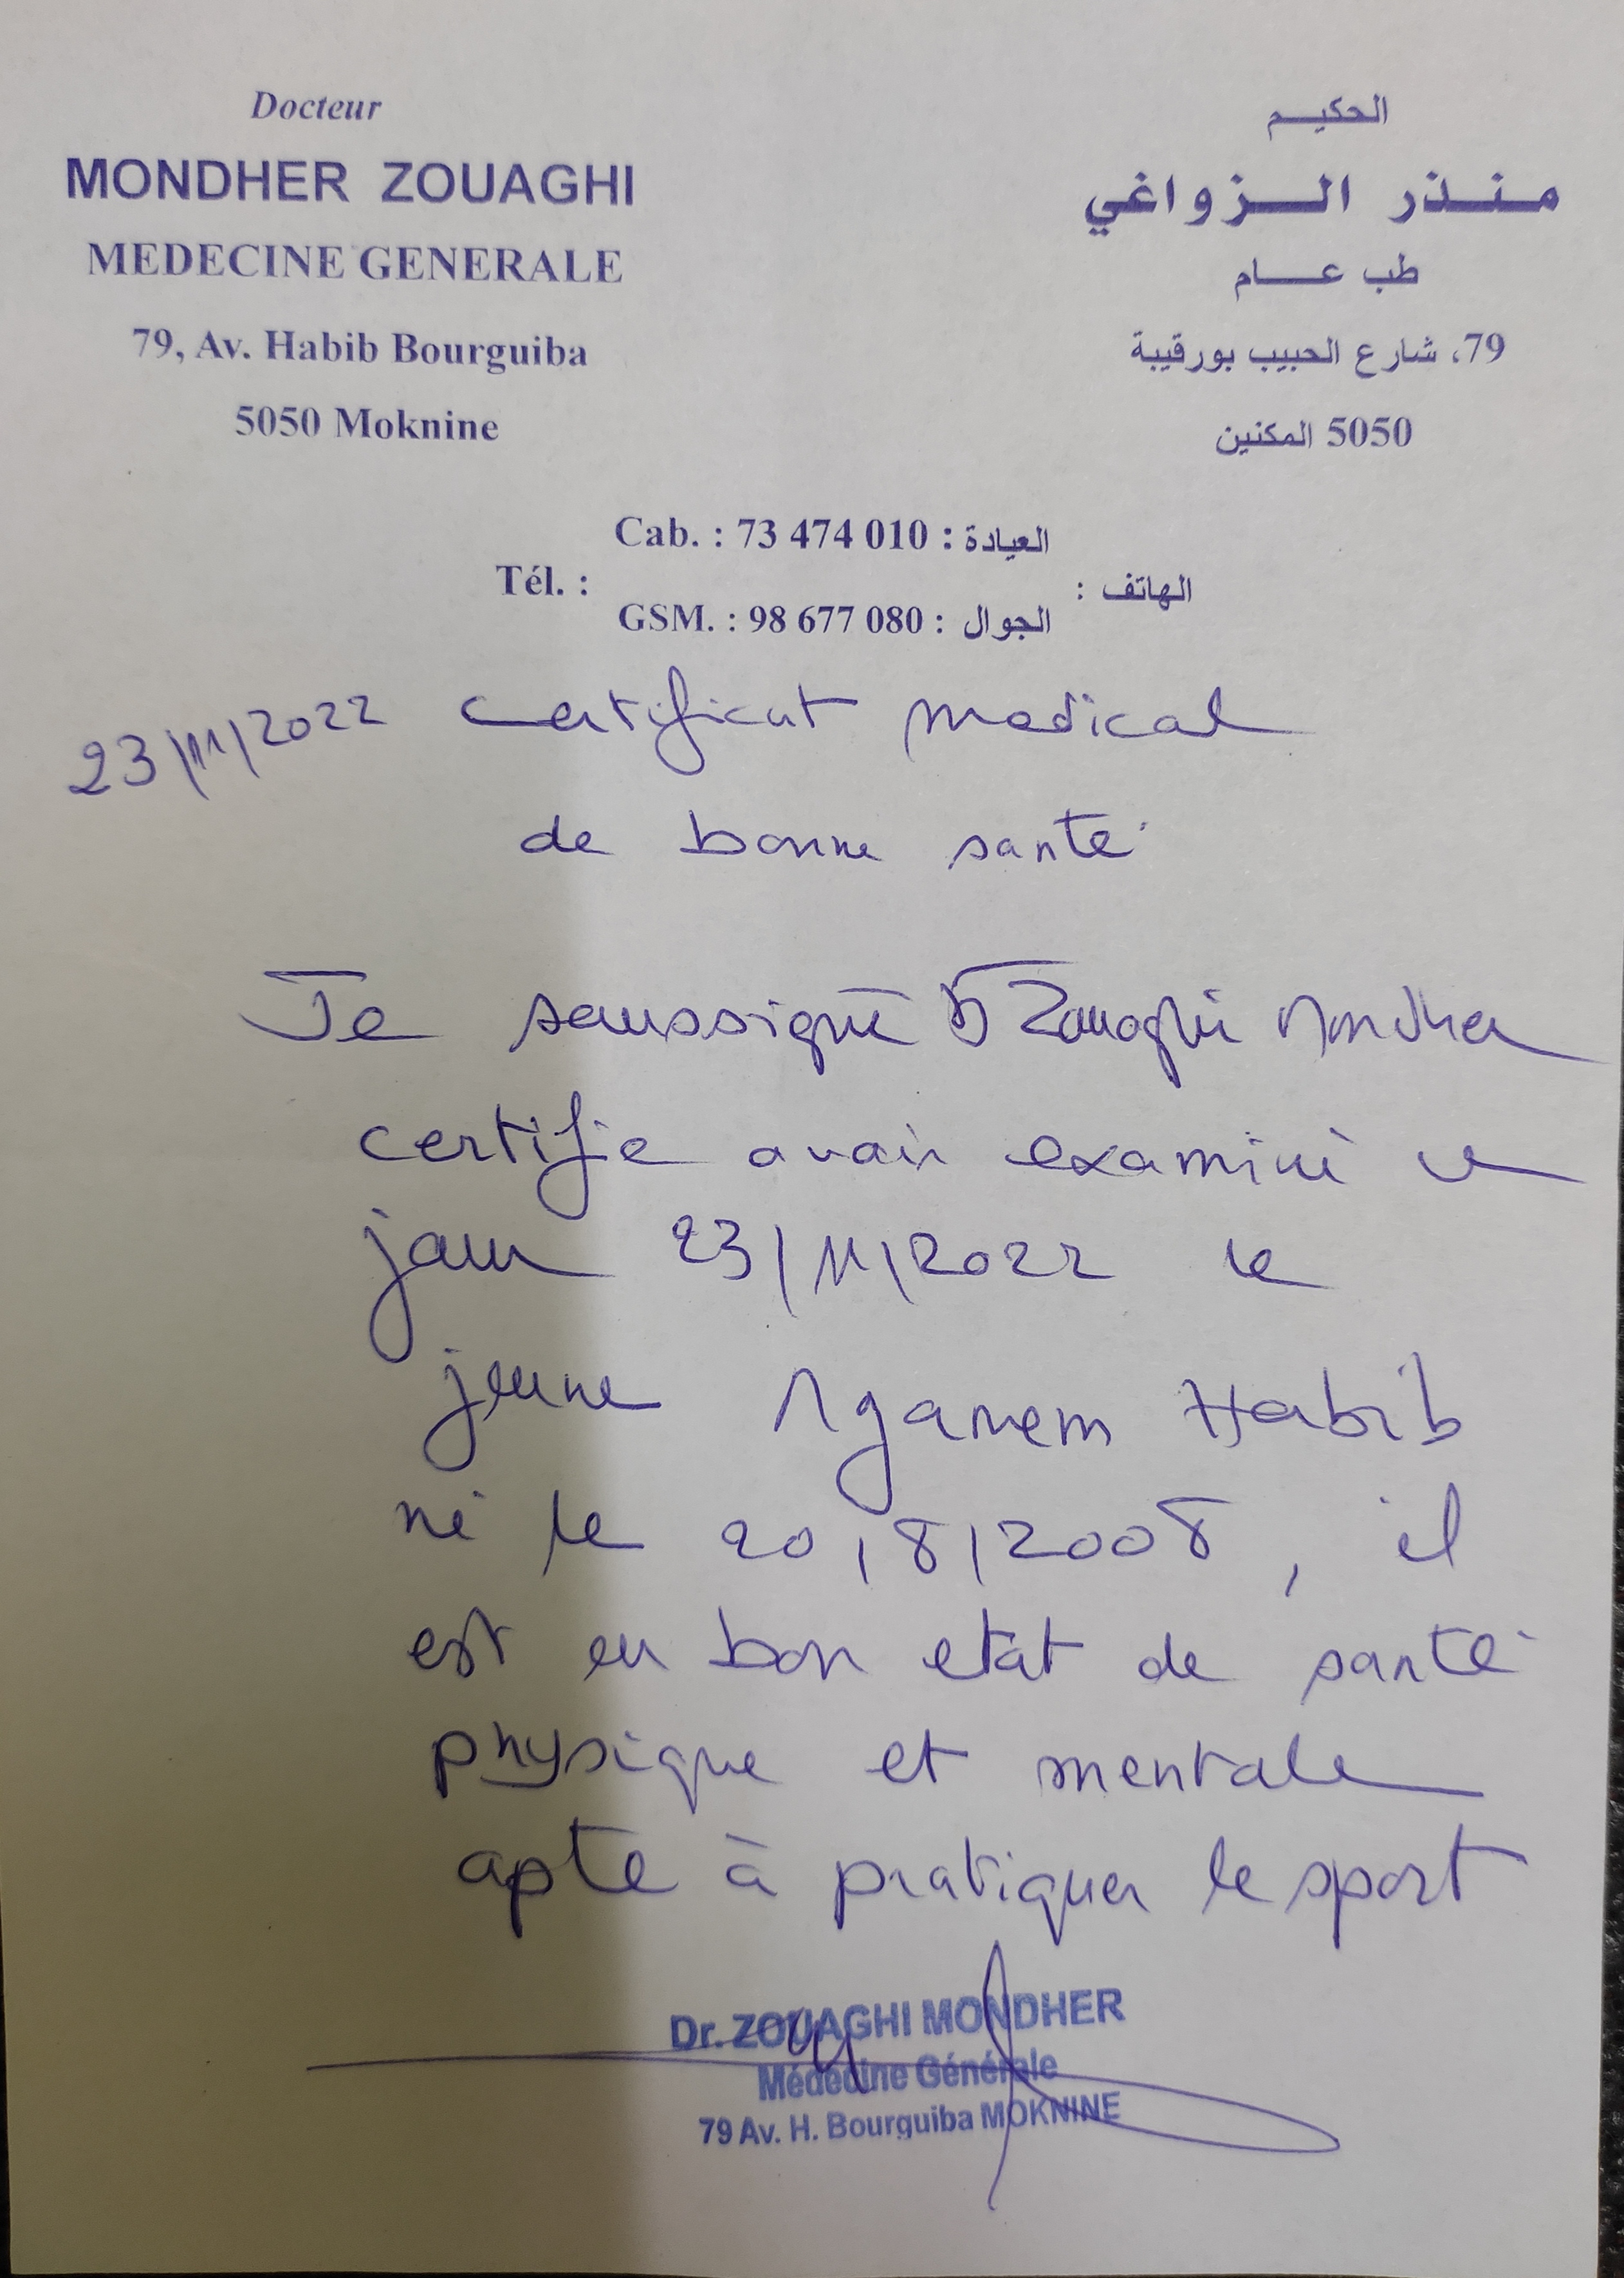 Docteur
MONDHER ZOUAGHI
MEDECINE GENERALE
79, Av. Habib Bourguiba
5050 Moknine
الحكيم
منذر الزواغي
طب عام
79، شارع الحبيب بورقيبة
5050 المكنين
Cab. : 73 474 010 : العيادة
Tél. : الهاتف :
GSM. : 98 677 080 : الجوال
23/11/2022 certificat medical
de bonne santé
Je soussigné Dr Zouaghi Mondher
certifie avoir examiné ce
jour 23/11/2022 le
jeune Nganem Habib
né le 20/8/2008, il
est en bon etat de santé
physique et mentale
apte à pratiquer le sport
Dr. ZOUAGHI MONDHER
Médecine Générale
79 Av. H. Bourguiba MOKNINE